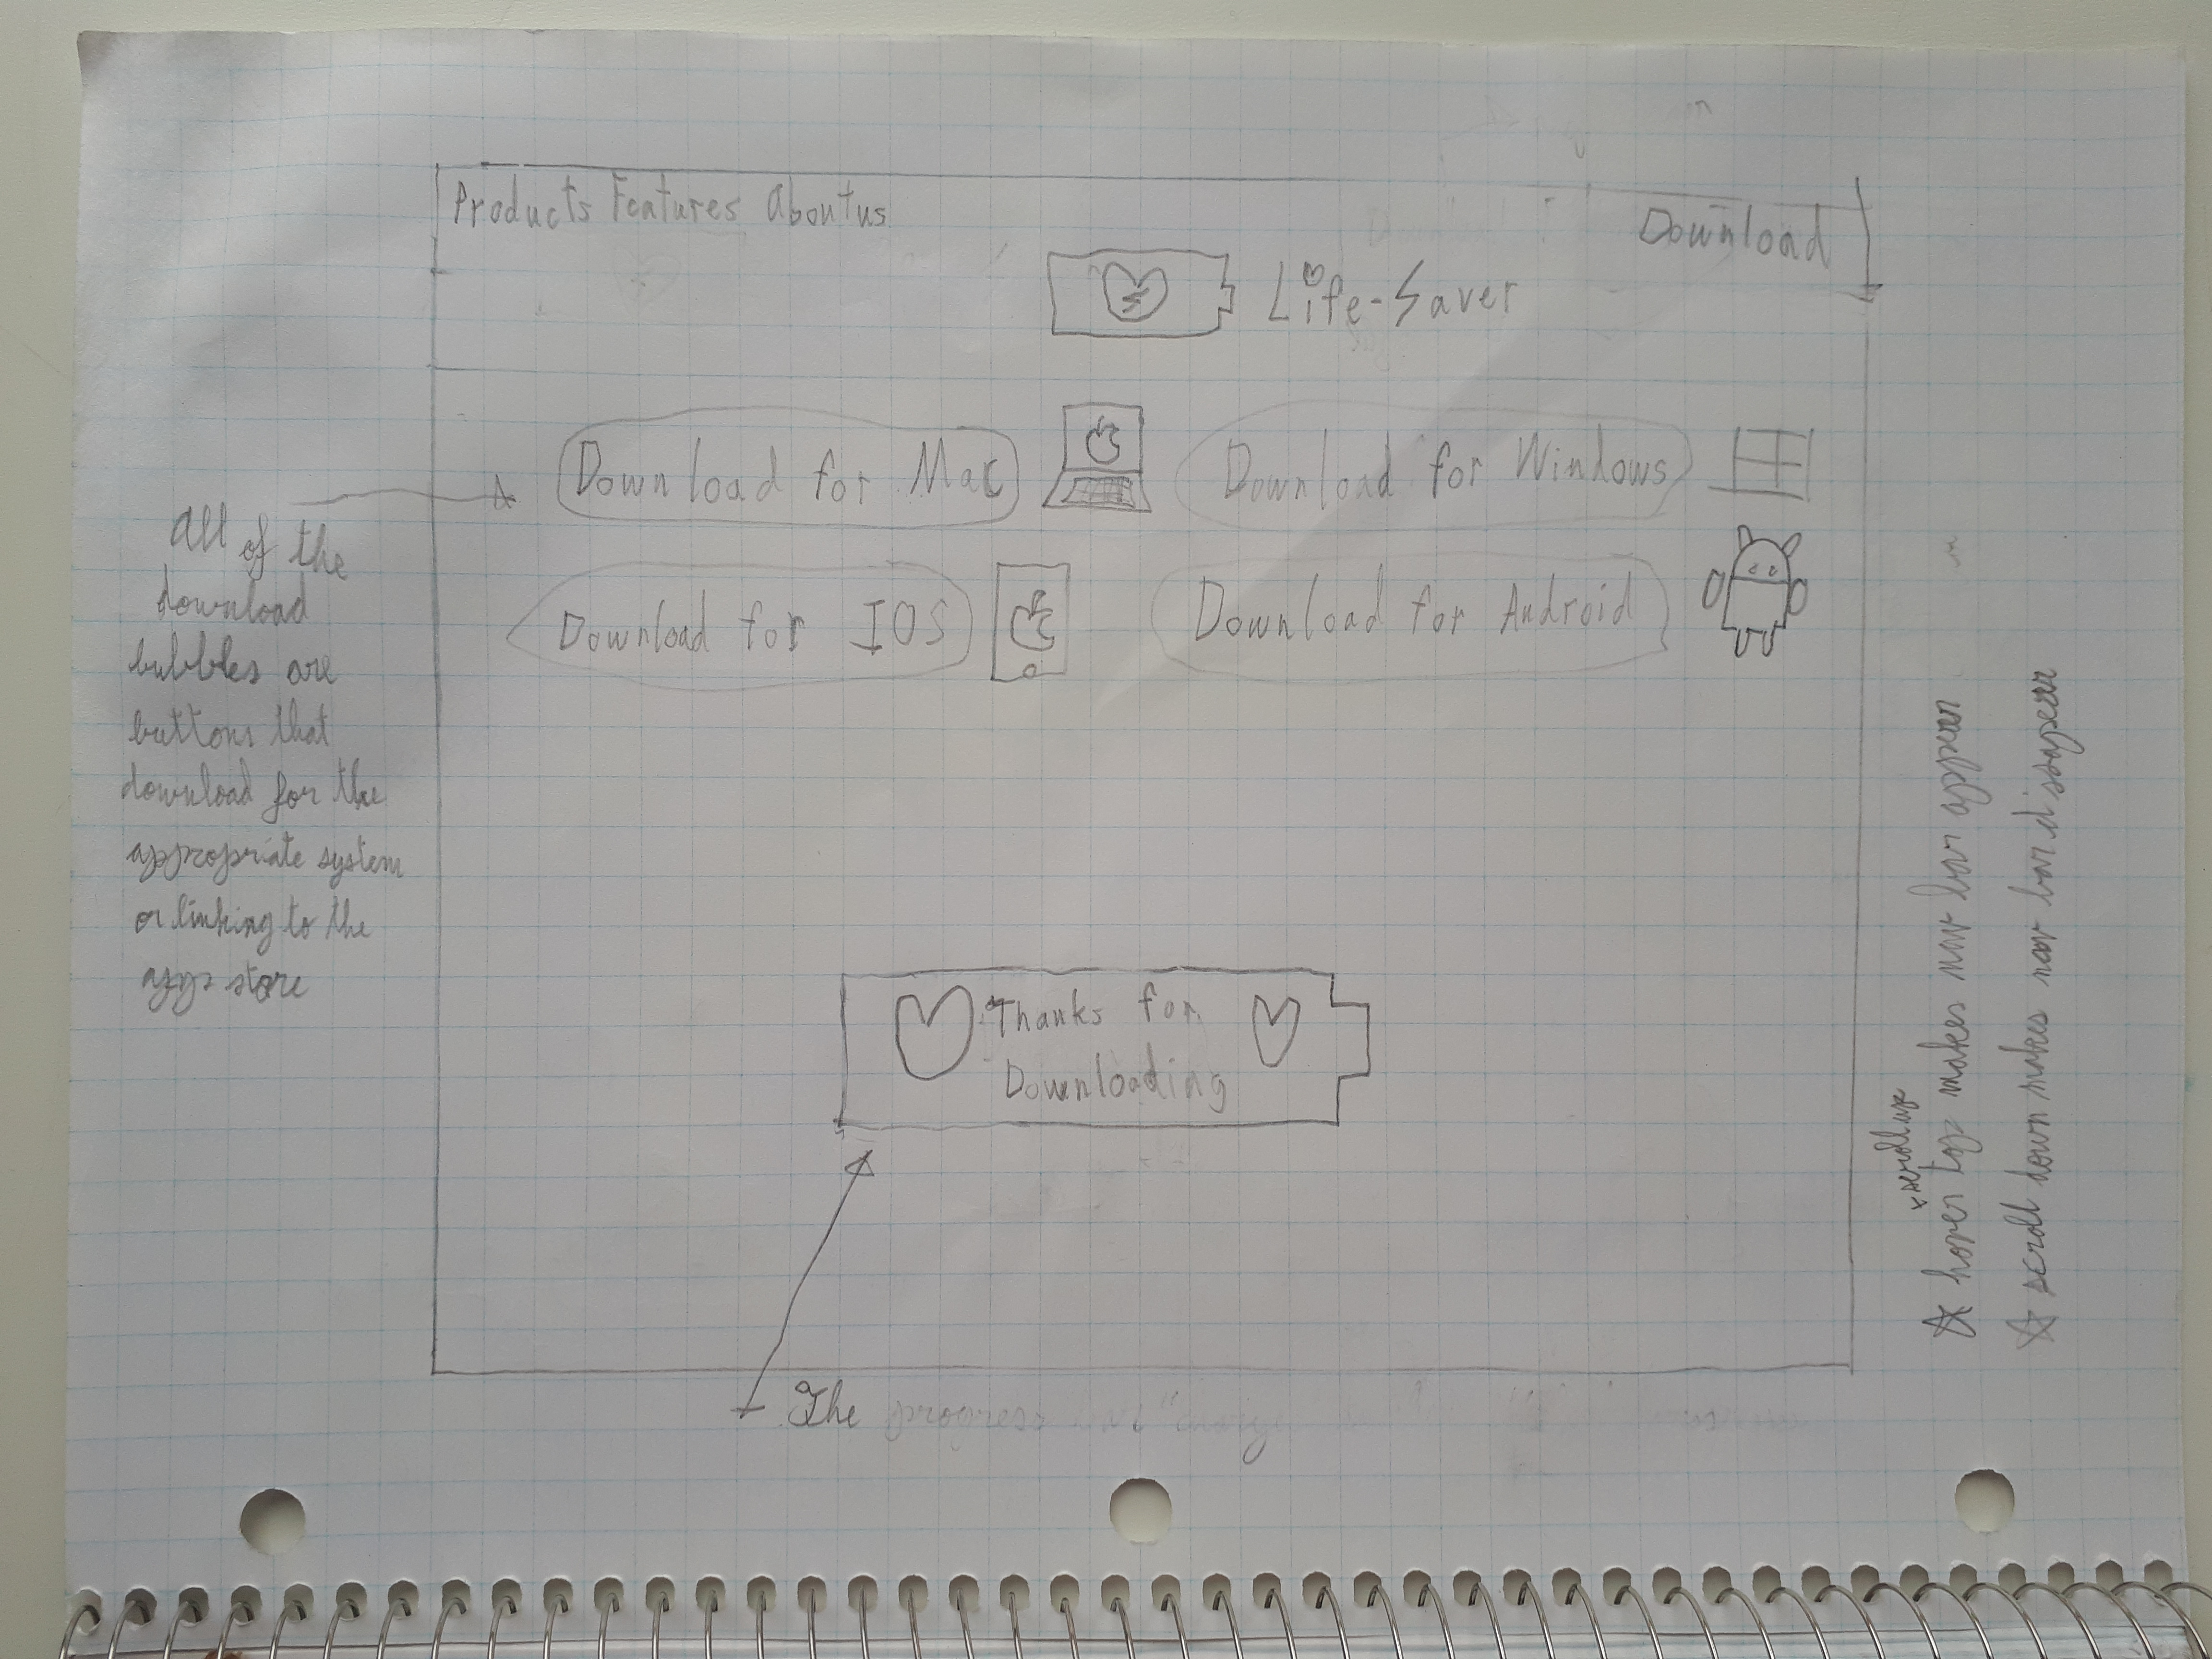 Products Features About us
Download
Life-Saver
Download for Mac
Download for Windows
Download for IOS
Download for Android
All of the
download
bubbles are
buttons that
download for the
appropriate system
or linking to the
app store
Thanks for
Downloading
The progress
scroll up
☆ hover top makes nav bar appear
☆ scroll down makes nav bar dissapear